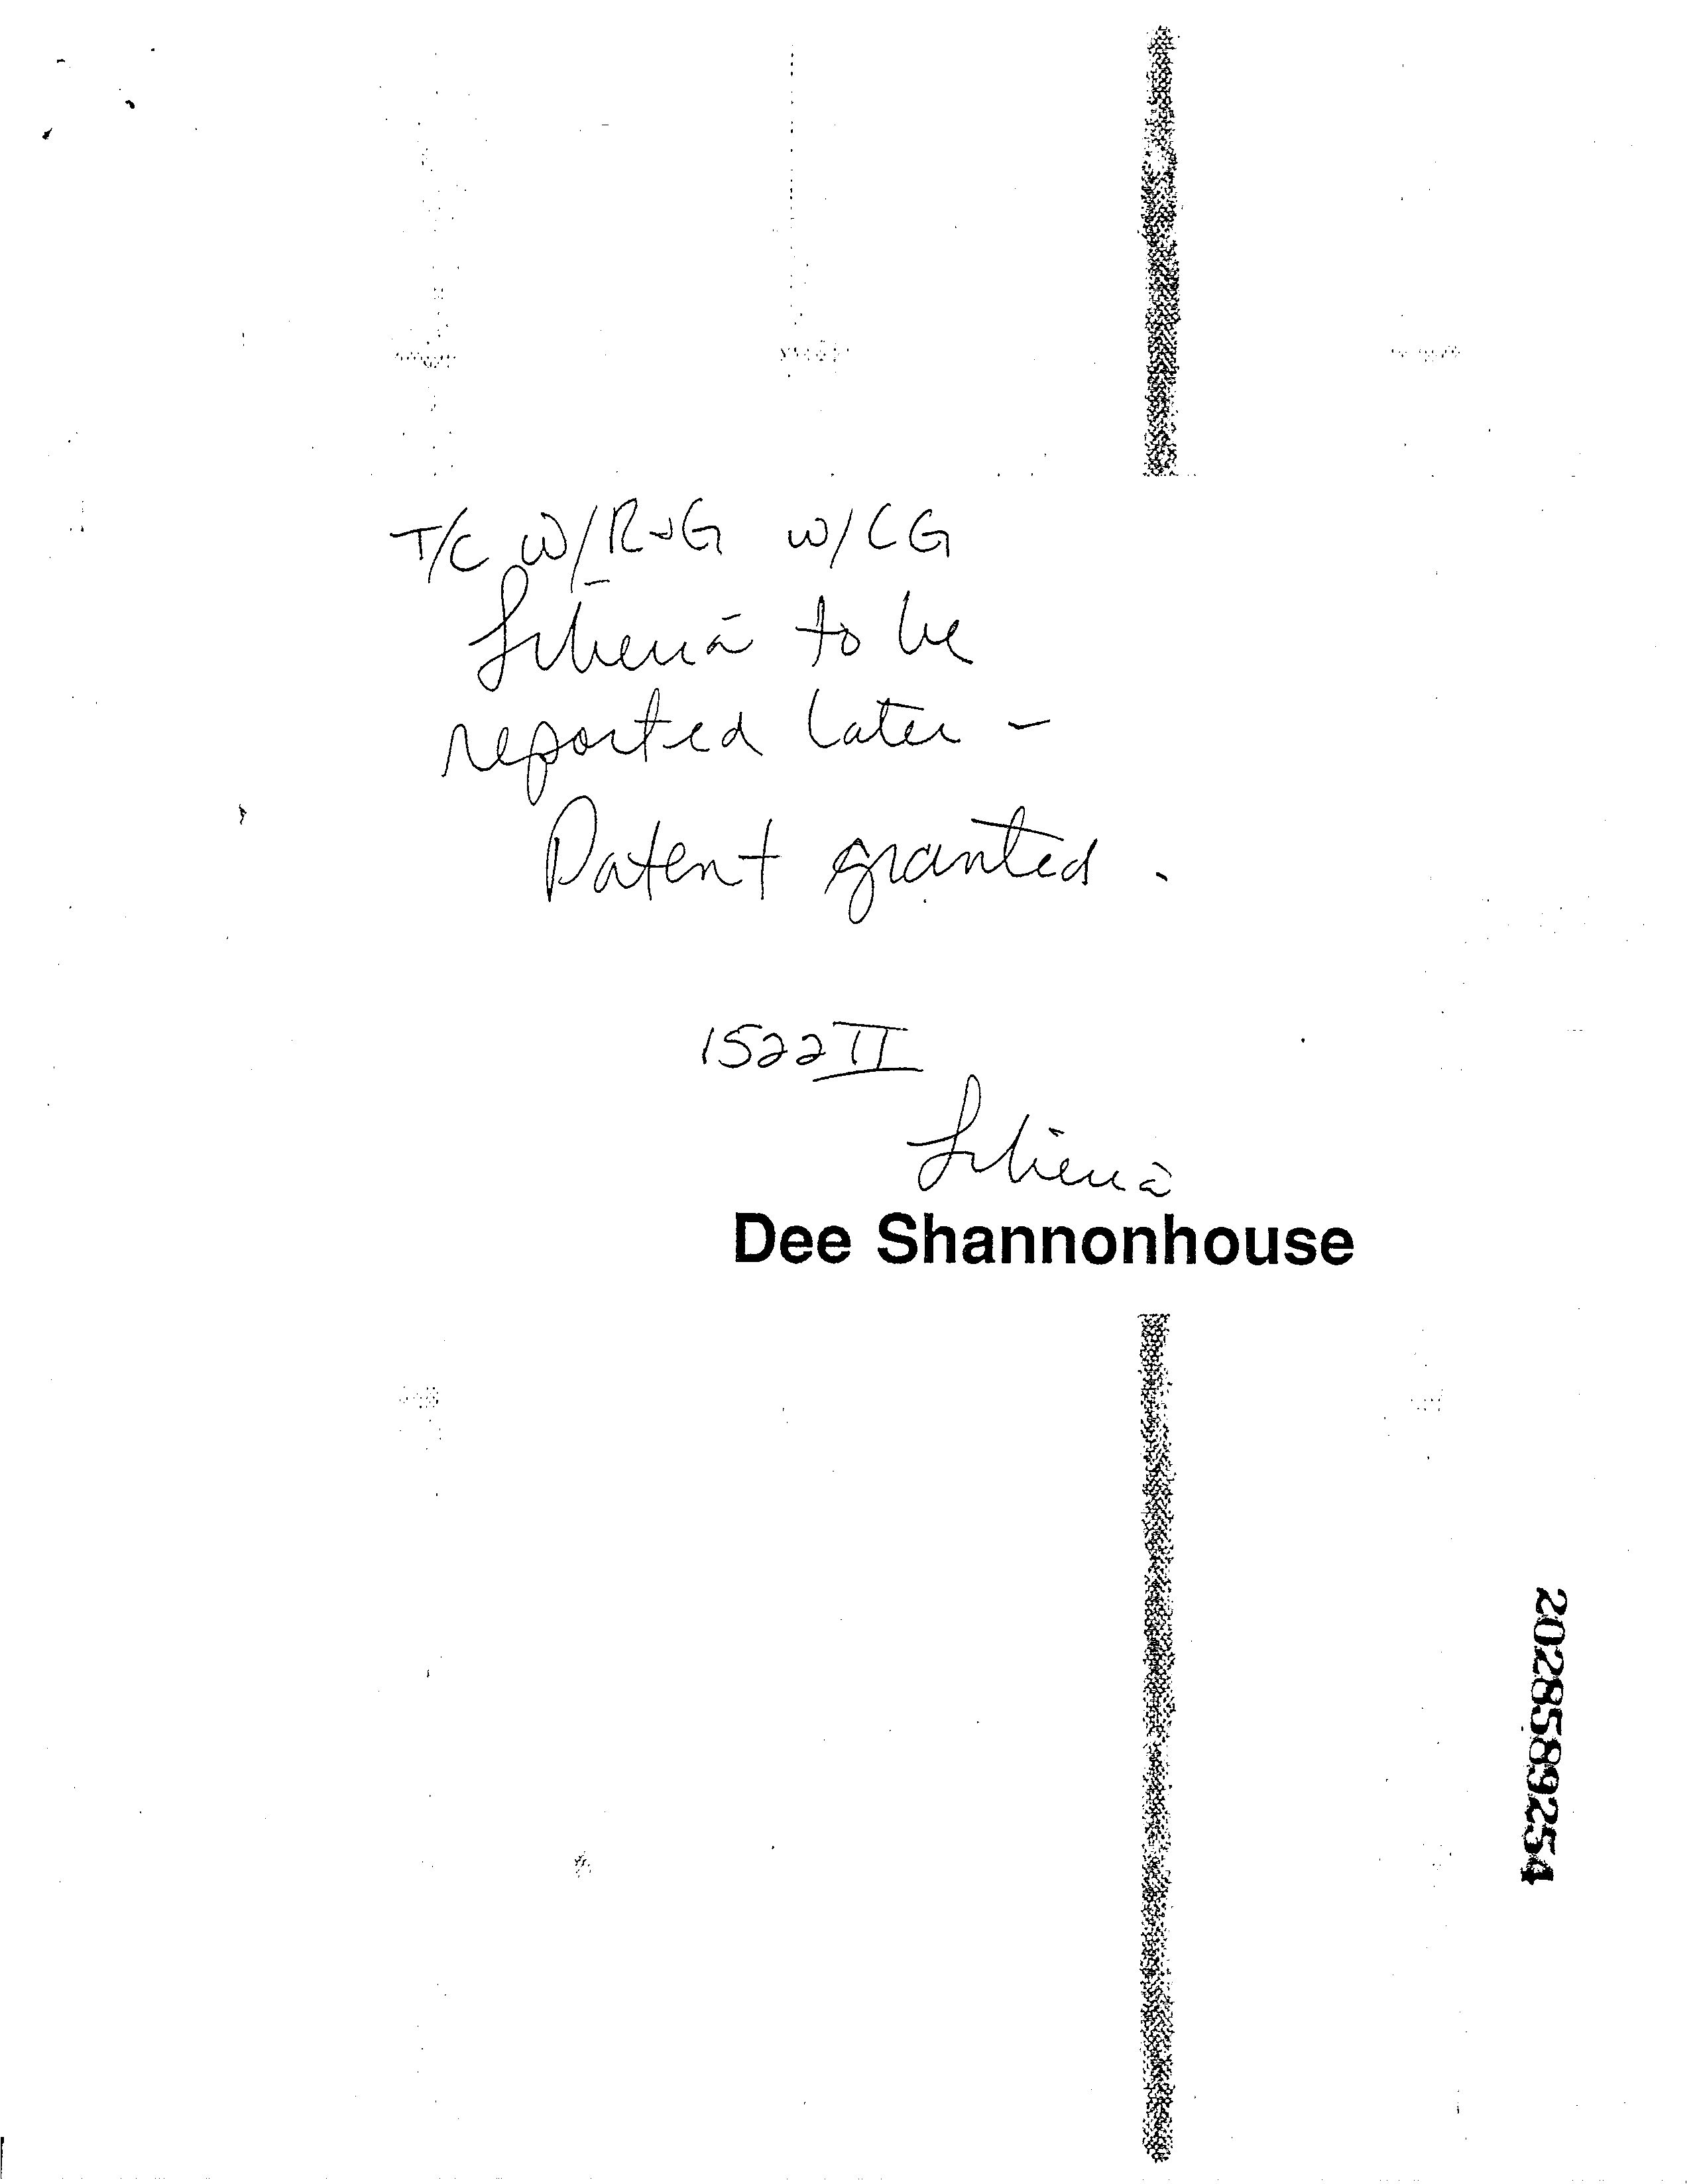 T/C w/ RJG w/ CG
Liberia to be
reported later -
Patent granted.
1522 II
Liberia
Dee Shannonhouse
2028589254